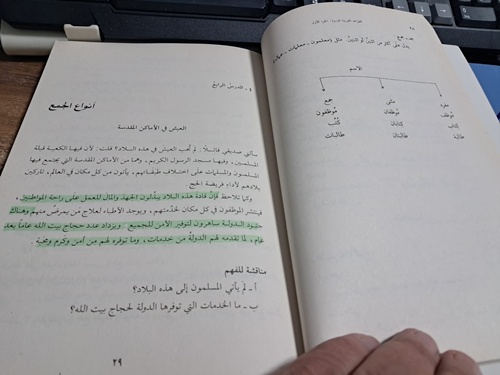 ٢٨
القواعد العربية الميسرة - الجزء الأول
جـ - جمع
يدل على أكثر من اثنين أو اثنتين. مثل (معلمون - معلمات -
الاسم
مفرد مثنى جمع
موظف موظفان موظفون
كتاب كتابان كتب
طالبة طالبتان طالبات
٤ ـ الدرس الرابع
أنواع الجمع
العيش في الأماكن المقدسة
سألني صديقي قائلاً: لم تحب العيش في هذه البلاد؟ قلت: لأن فيها الكعبة قبلة
المسلمين، وفيها مسجد الرسول الكريم، وهما من الأماكن المقدسة التي يجتمع فيها
المسلمون والمسلمات على اختلاف طبقاتهم، يأتون من كل مكان في العالم، تاركين
بلادهم لأداء فريضة الحج.
وكما تلاحظ فإن قادة هذه البلاد يبذلون الجهد والمال للعمل على راحة المواطنين،
فينتشر الموظفون في كل مكان لخدمتهم، ويوجد الأطباء لعلاج من يمرض منهم وهناك
جنود الدولة ساهرون لتوفير الأمن للجميع. ويزداد عدد حجاج بيت الله عاماً بعد
عام، لما تقدمه لهم الدولة من خدمات، وما توفره لهم من أمن وكرم ومحبة.
مناقشة للفهم
أ ـ لم يأتي المسلمون إلى هذه البلاد؟
ب ـ ما الخدمات التي توفرها الدولة لحجاج بيت الله؟
٢٩